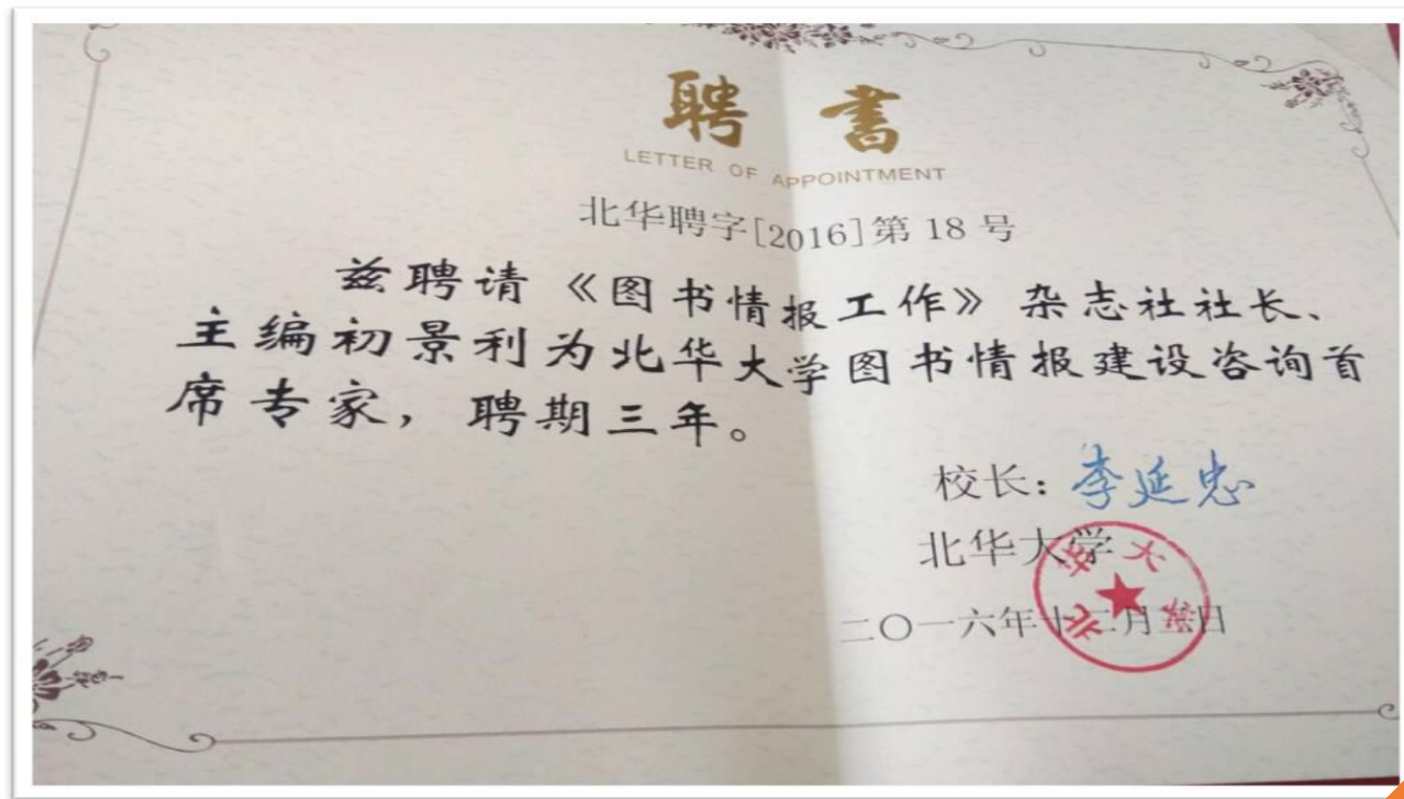 聘 书
LETTER OF APPOINTMENT
北华聘字[2016]第 18 号
兹聘请《图书情报工作》杂志社社长、
主编初景利为北华大学图书情报建设咨询首
席专家，聘期三年。
校长：李延忠
北华大学
北华大学
二〇一六年十二月 日